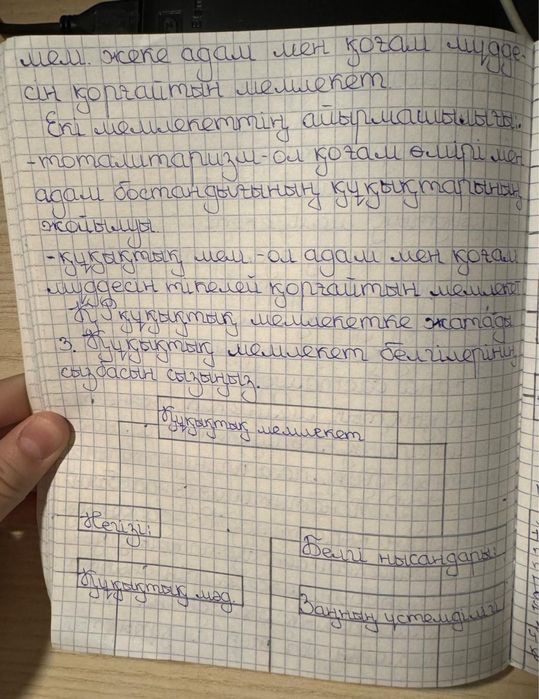 мем. жеке адам мен қоғам мүдде-
сін қорғайтын мемлекет.
Екі мемлекеттің айырмашылығы:
-тоталитаризм-ол қоғам өмірі мен
адам бостандығының құқықтарының
жойылуы.
-құқықтық мем.-ол адам мен қоғам
мүддесін тікелей қорғайтын мемлекет
ҚР құқықтық мемлекетке жатады
3. Құқықтық мемлекет белгілерінің
сызбасын сызыңыз.
Құқықтық мемлекет
Негізі:
Белгі нысандары:
Құқықтық мәд.
Заңның үстемділігі